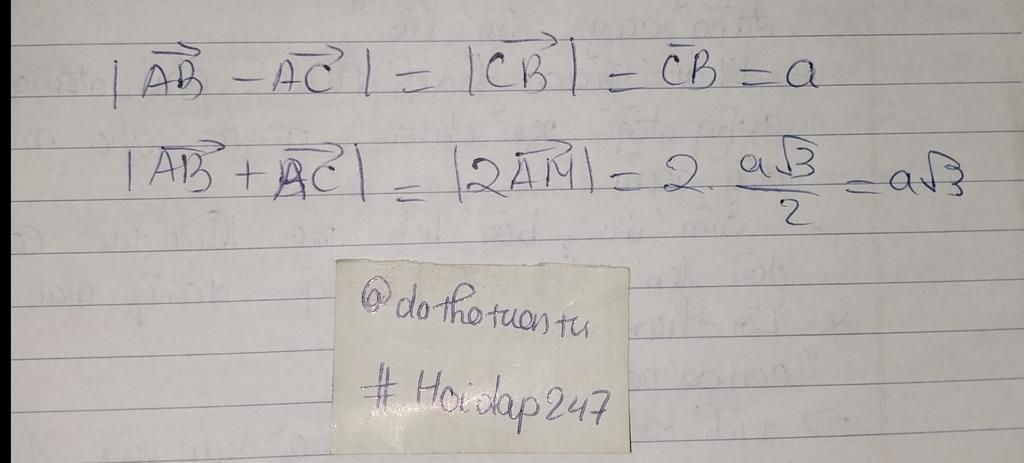 |AB→ − AC→| = |CB→| = CB = a
|AB→ + AC→| = |2AM→| = 2. a√3/2 = a√3
@dothotuantu
# Hoidap247